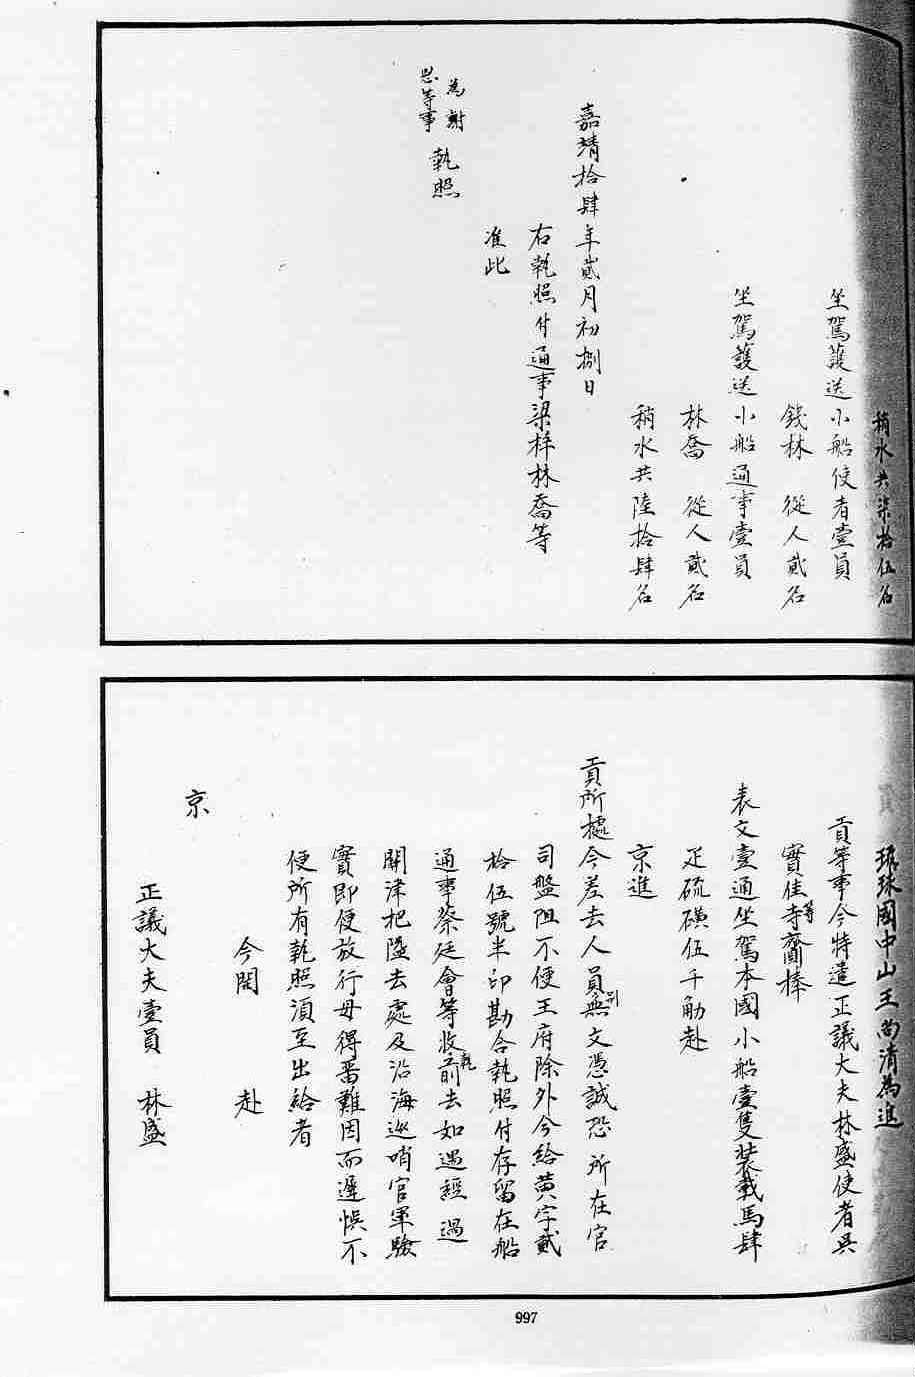 稍水共柒拾伍名
坐駕護送小船使者壹員
錢林 從人貳名
坐駕護送小船通事壹員
林喬 從人貳名
稍水共陸拾肆名
嘉靖拾肆年貳月初捌日
右執照付通事梁梓林喬等
准此
為謝
恩等事 執照
琉球國中山王尚清為進
貢等事今特遣正議大夫林盛使者吳
實佳等寺齎捧
表文壹通坐駕本國小船壹隻裝載馬肆
疋硫磺伍千觔赴
京進
貢所據今差去人員別無文憑誠恐所在官
司盤阻不便王府除外今給黃字貳
拾伍號半印勘合執照付存留在船
通事蔡廷會等收執前去如遇經過
關津把隘去處及沿海巡哨官軍驗
實即便放行毋得畱難因而遲悞不
便所有執照須至出給者
今開 赴
京
正議大夫壹員 林盛
997